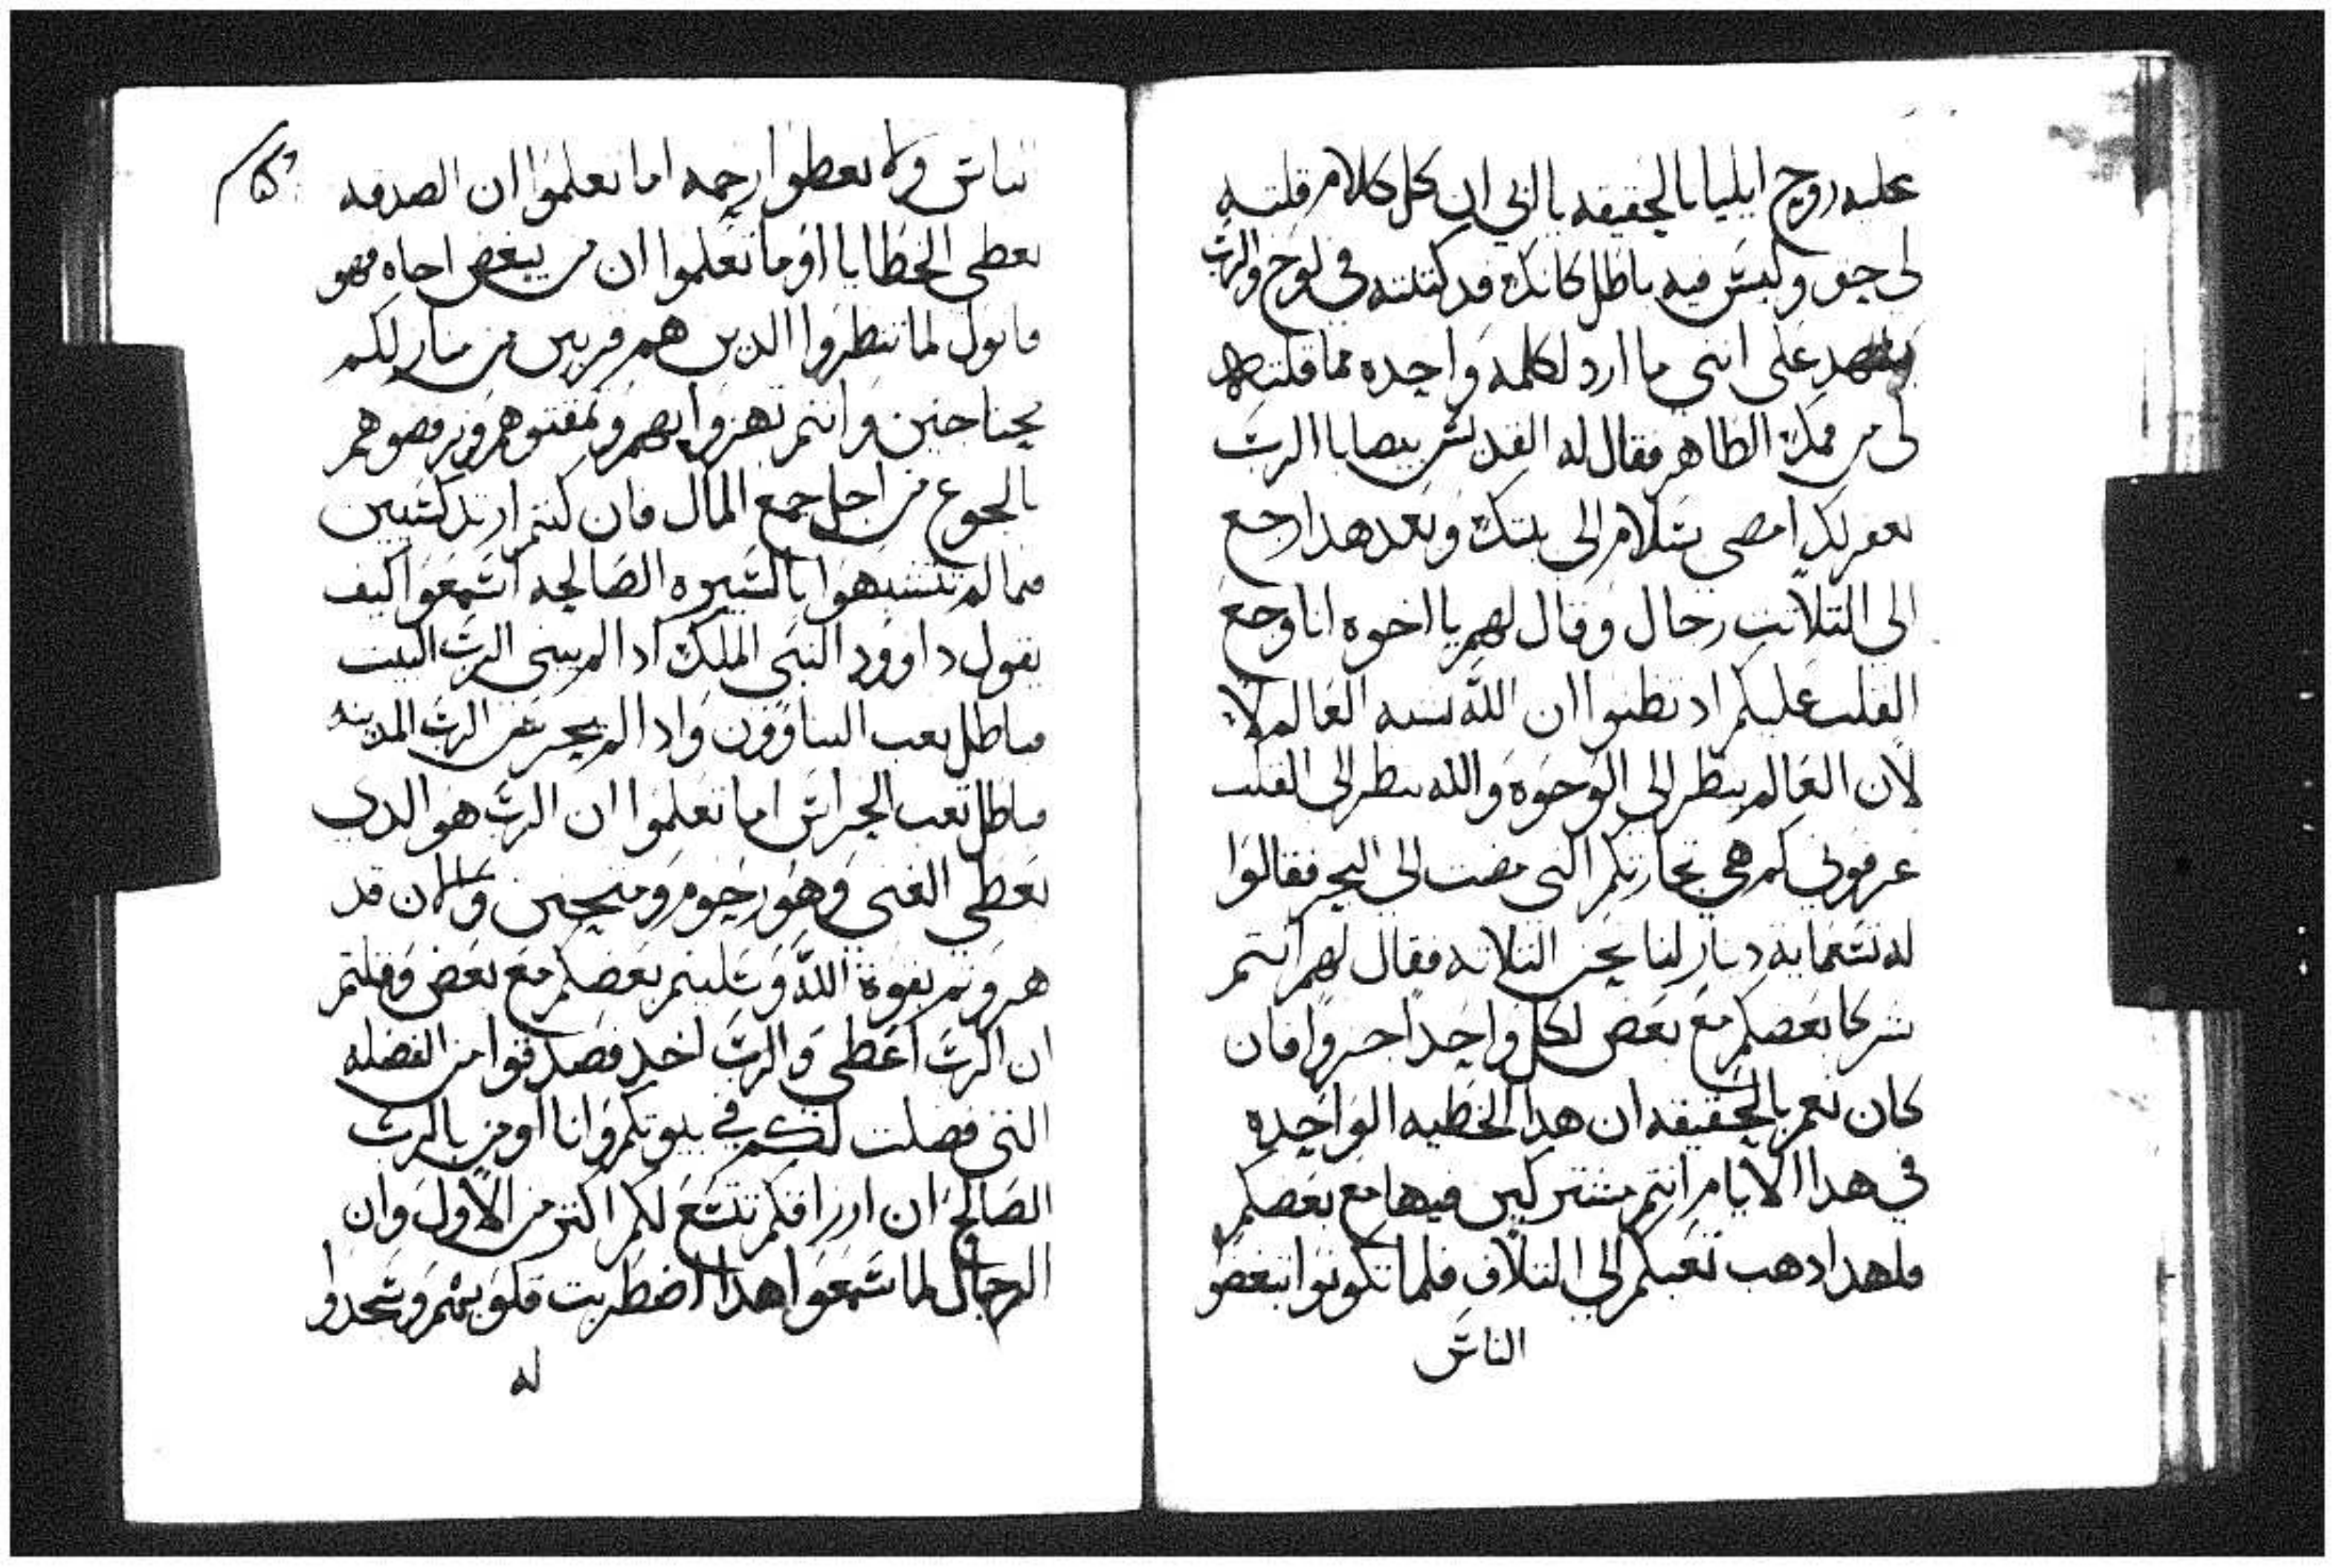 عليه روح ايليا بالحقيقه يا ابي ان كل كلام قلته
لي حق وليس فيه باطل كانك قد كتبته في لوح والرب
يشهد على انني ما ارد لكلمه واحده مما قلته
لي من فمك الطاهر فقال له القديس بيصا يا الرب
يغفر لك امضي بسلام الى بيتك وبعد هدا رجع
الى التلاتت رجال وقال لهم يا اخوه انا وجع
القلب عليكم اد تظنوا ان الله شبه العالم لا
لان العالم ينظر الى الوجوه والله ينظر الى القلب
عرفوني كم هي تجارتكم التي مضت الى البحر فقالوا
له تسعمايه دينار لنا نحن التلاته فقال لهم انتم
شركا بعضكم مع بعض لكل واحد اجروا فان
كان نعم بالحقيقه ان هدا الخطيه الواحده
في هدا الايام انتم مشتركين فيها مع بعضكم
فلهدا دهب تعبكم الى التلاف فلما تكونوا تبغضوا
الناس
تباش ولا تعطوا رحمه اما تعلموا ان الصدقه
تعطى الخطايا اوما تعلموا ان من يبغض اخاه فهو
قاتول لما تنظروا الدين هم قريبين من منازلكم
يحتاجين وانتم تهزوا بهم وتمقتوهم وترفصوهم
بالجوع من اجل جمع المال فان كنتم ارتدكسيين
فما لم تتشبهوا بالسيره الصالحه اسمعوا كيف
يقول داوود النبي الملك ادا لم يبني الرب البيت
فباطل تعب البناوون وادا لم يحرس الرب المدينه
فباطل تعب الحراس اما تعلموا ان الرب هو الدى
يعطي الغنى وهو رحوم ومتحنن والان قد
هروتم بقوة الله وسلبتم بعضكم مع بعض وقلتم
ان الرب اعطى والرب اخد فصدقوا من الفضله
التى فضلت لكم في بيوتكم وانا اومن بالرب
الصالح ان ارزاقكم تتسع لكم اكتر من الاول وان
الرجال لما سمعوا هدا اضطربت قلوبهم وسجدوا
له